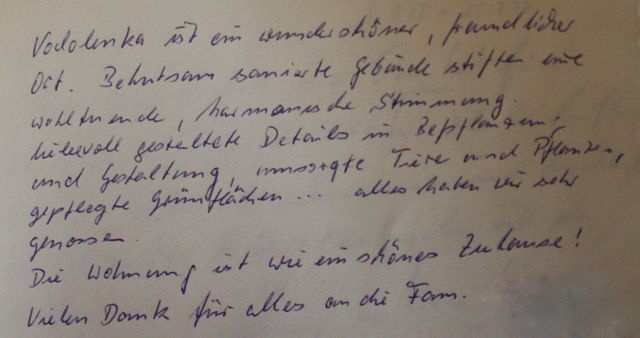 Vodolenka ist ein wunderschöner, freundlicher
Ort. Behutsam sanierte Gebäude stiften eine
wohltuende, harmonische Stimmung.
Liebevoll gestaltete Details in Bepflanzung
und Gestaltung, umsorgte Tiere und Pflanzen,
gepflegte Grünflächen... alles haben wir sehr
genossen.
Die Wohnung ist wie ein schönes Zuhause!
Vielen Dank für alles an die Fam.